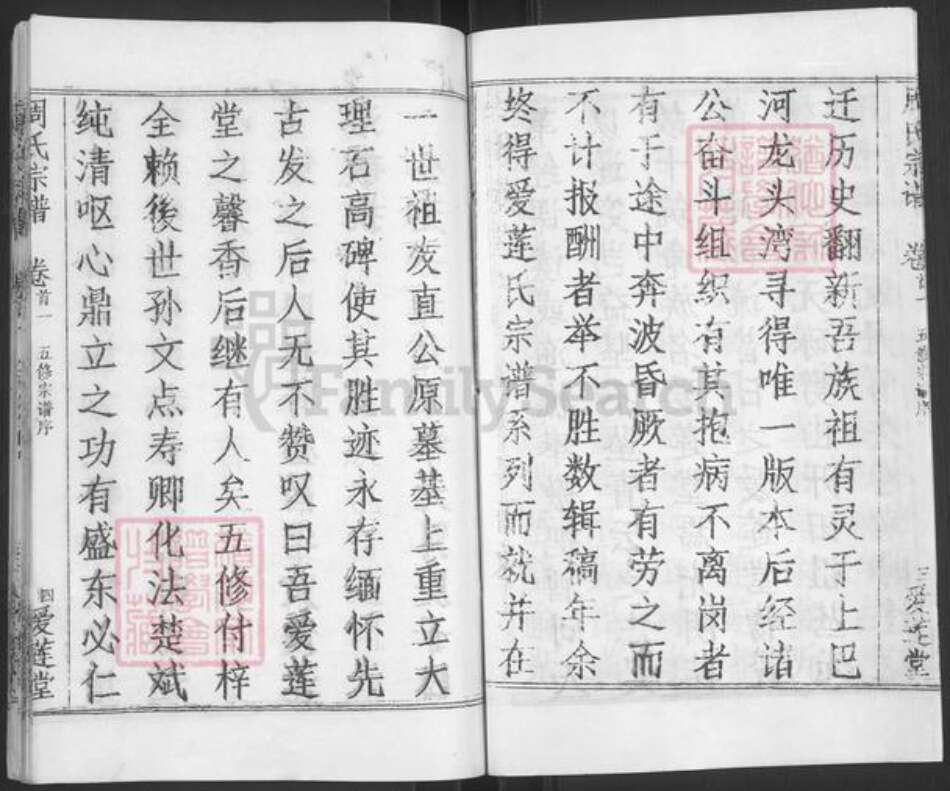 周氏宗谱 卷首一 五修宗谱序 三 爱莲堂
迁历史翻新吾族祖有灵于上巴
河龙头湾寻得唯一版本后经诸
公奋斗组织有其抱病不离岗者
有于途中奔波昏厥者有劳之而
不计报酬者举不胜数辑稿年余
终得爱莲氏宗谱系列而就并在
一世祖发直公原墓基上重立大
理石高碑使其胜迹永存缅怀先
古发之后人无不赞叹曰吾爱莲
堂之馨香后继有人矣五修付梓
全赖後世孙文点寿卿化法楚斌
纯清呕心鼎立之功有盛东必仁
周氏宗谱 卷首一 五修宗谱序 四 爱莲堂
FamilySearch